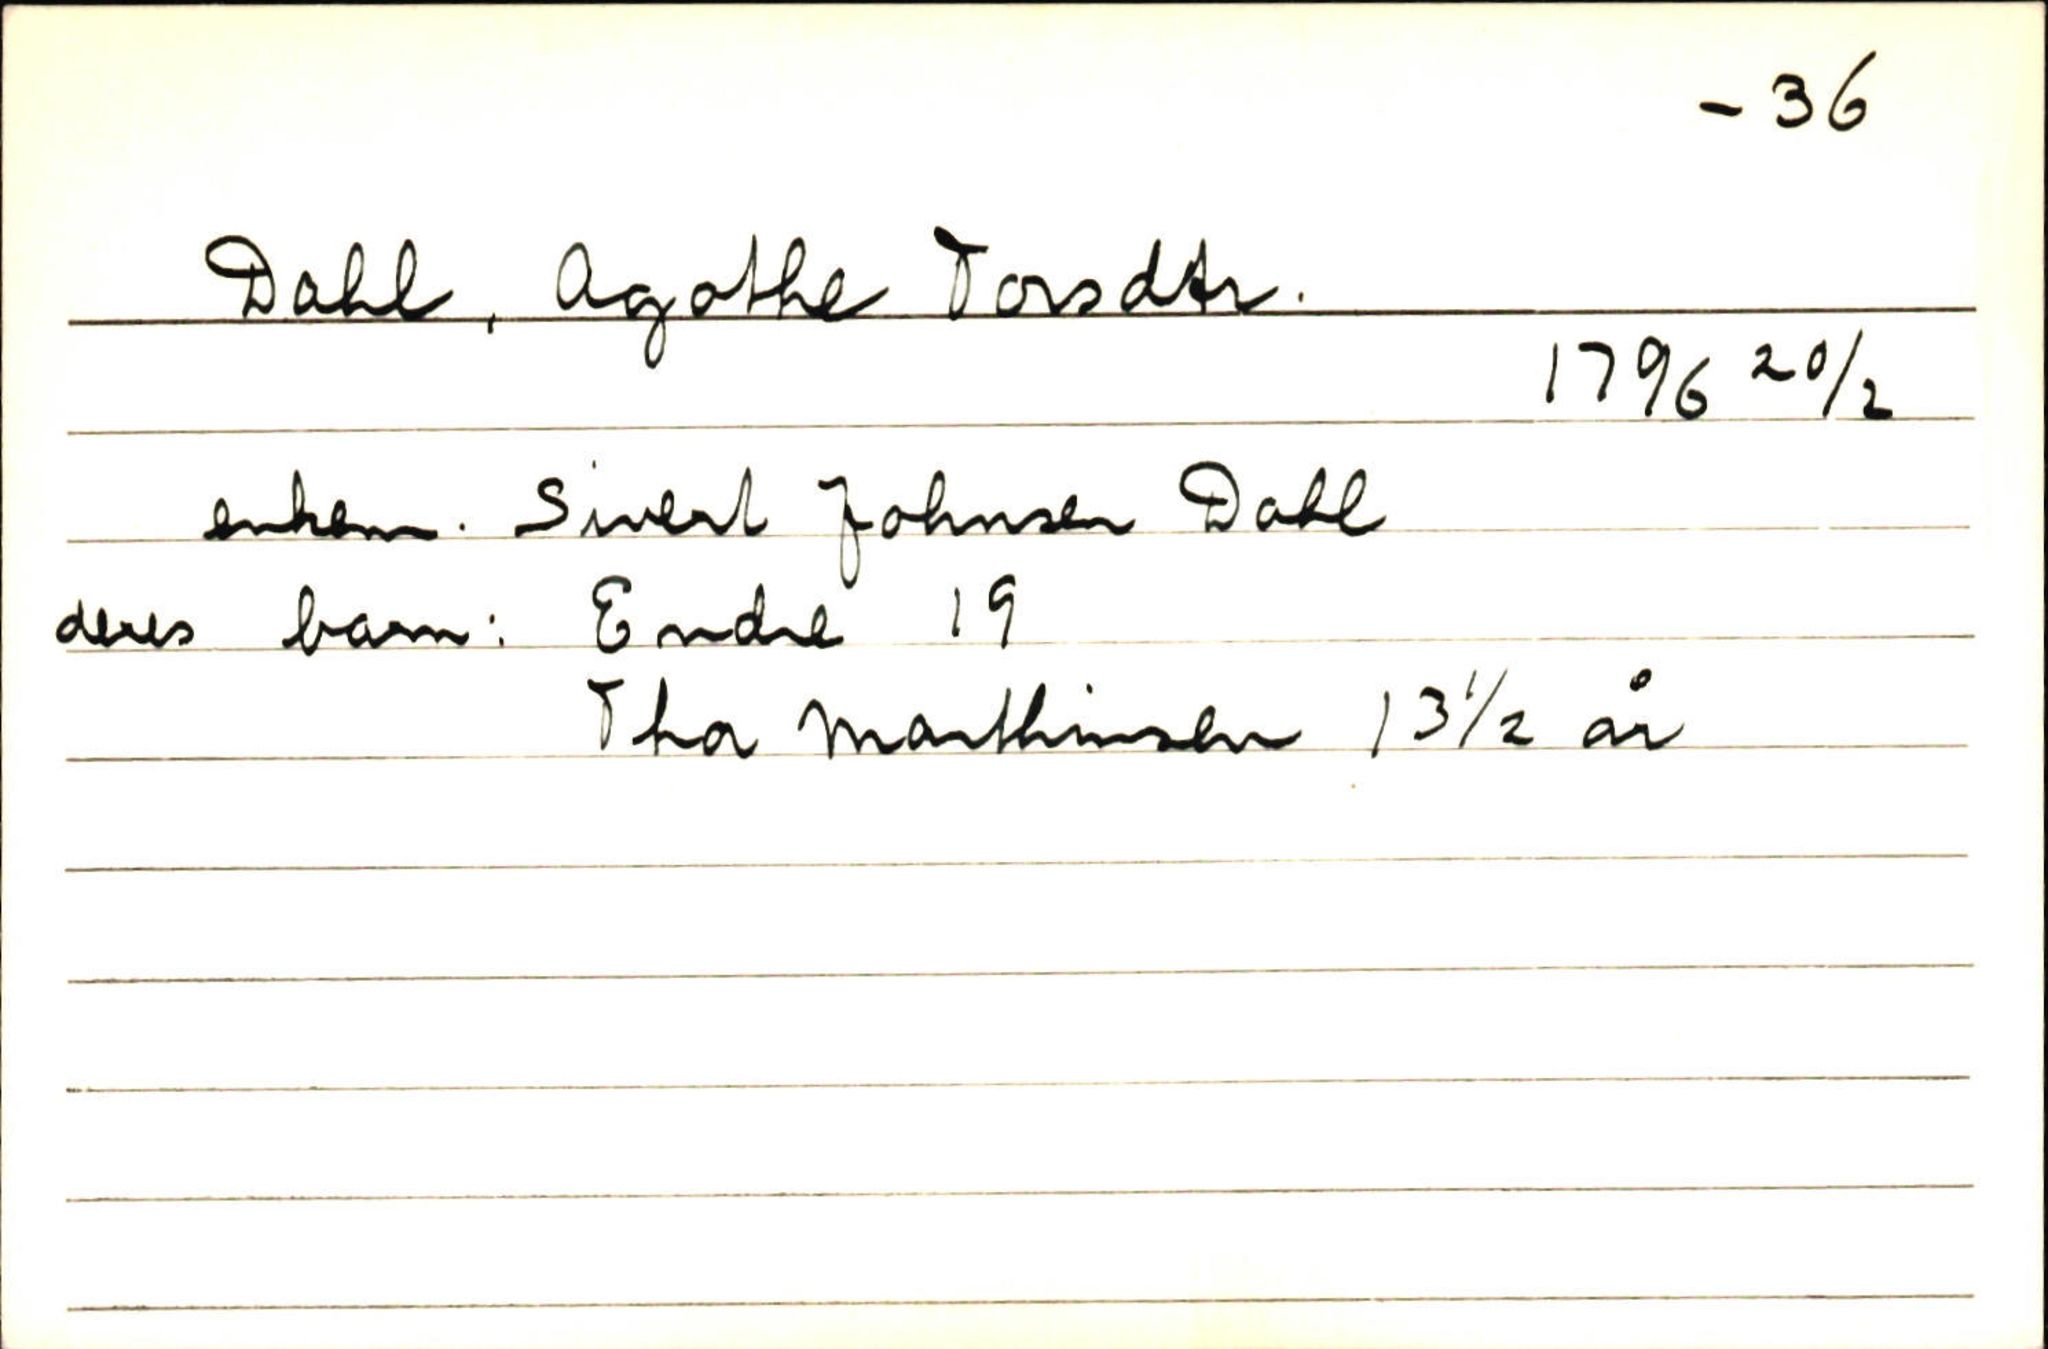 - 36
Dahl, Agathe Torsdtr.
1796 20/2
enkem. Sivert Johnsen Dahl
deres barn: Endre 19
Tha Marthinsen 13 1/2 år